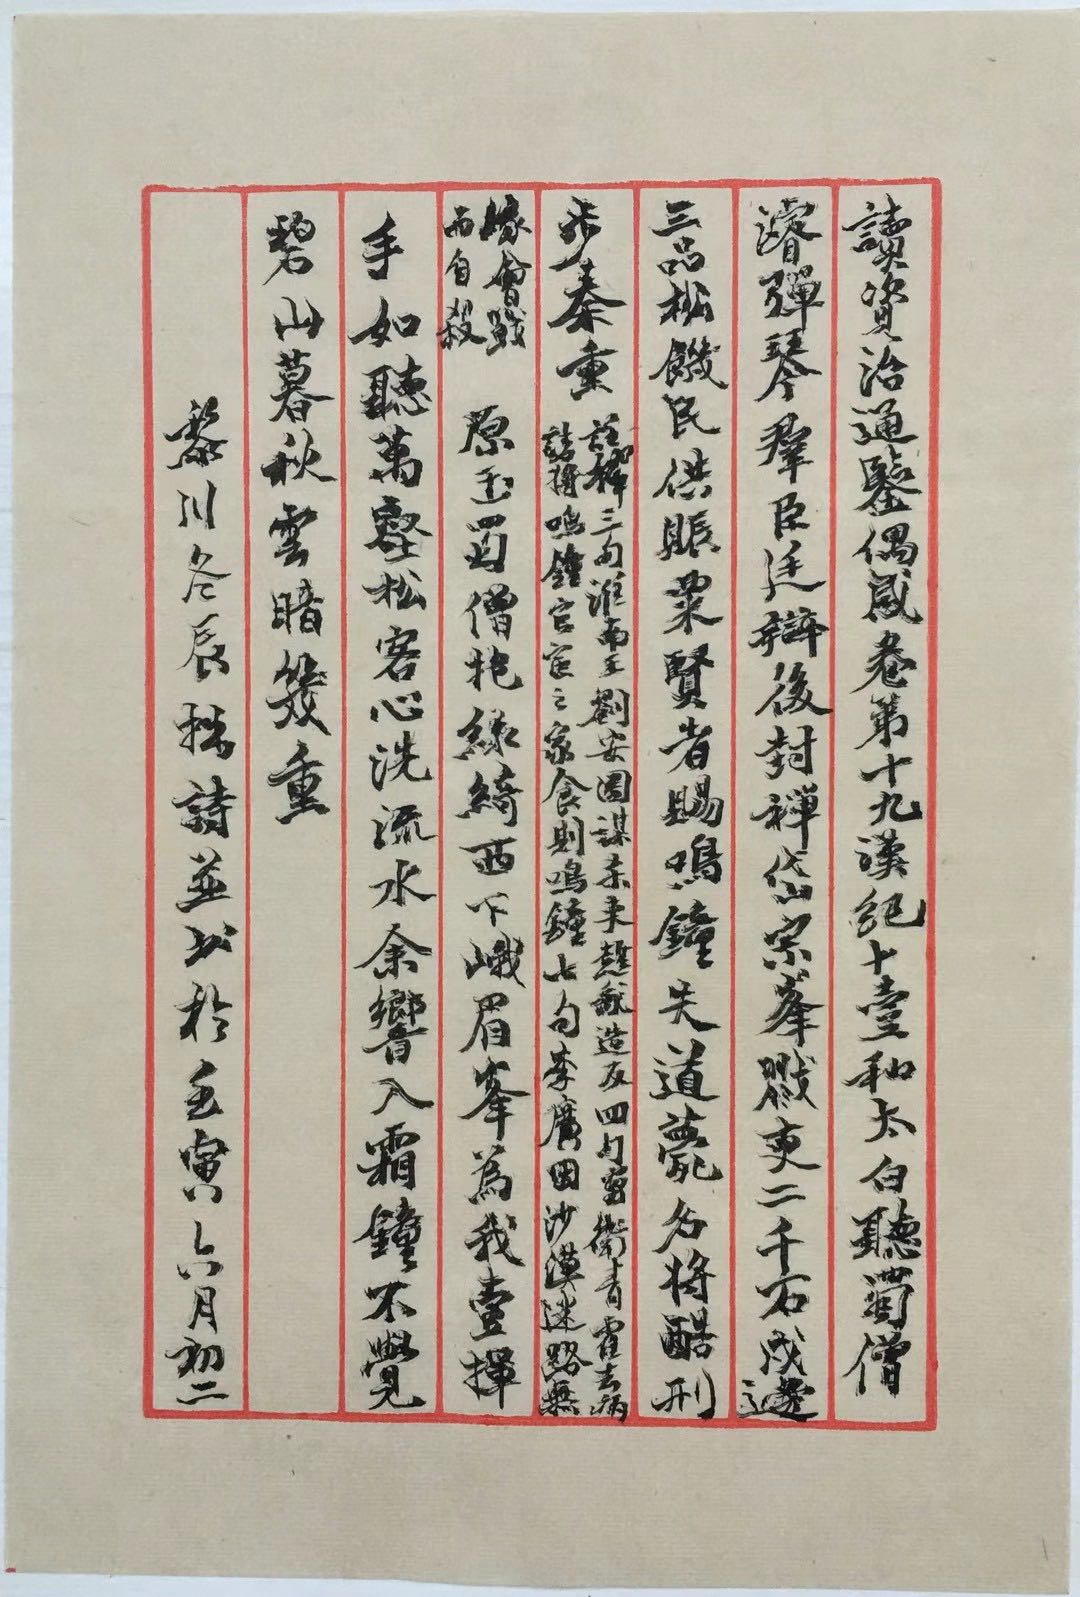 讀資治通鑒偶感卷第十九漢紀十壹和太白聽蜀僧
濬彈琴羣臣廷辯後封禪岱宗峯戮吏二千石戍邊
三品松饑民供賑粟賢者賜鳴鐘失道薨名將酷刑
步秦重
註釋三句淮南王劉安圖謀未來造反四句寫衛青霍去病
諸將鳴鐘官宦之家食則鳴鐘七句李廣因沙漠迷路無
緣會戰
而自殺
原玉蜀僧抱綠綺西下峨眉峯為我壹揮
手如聽萬壑松客心洗流水余響入霜鐘不覺
碧山暮秋雲暗幾重
黎川冬辰拙詩並书於壬寅六月初二